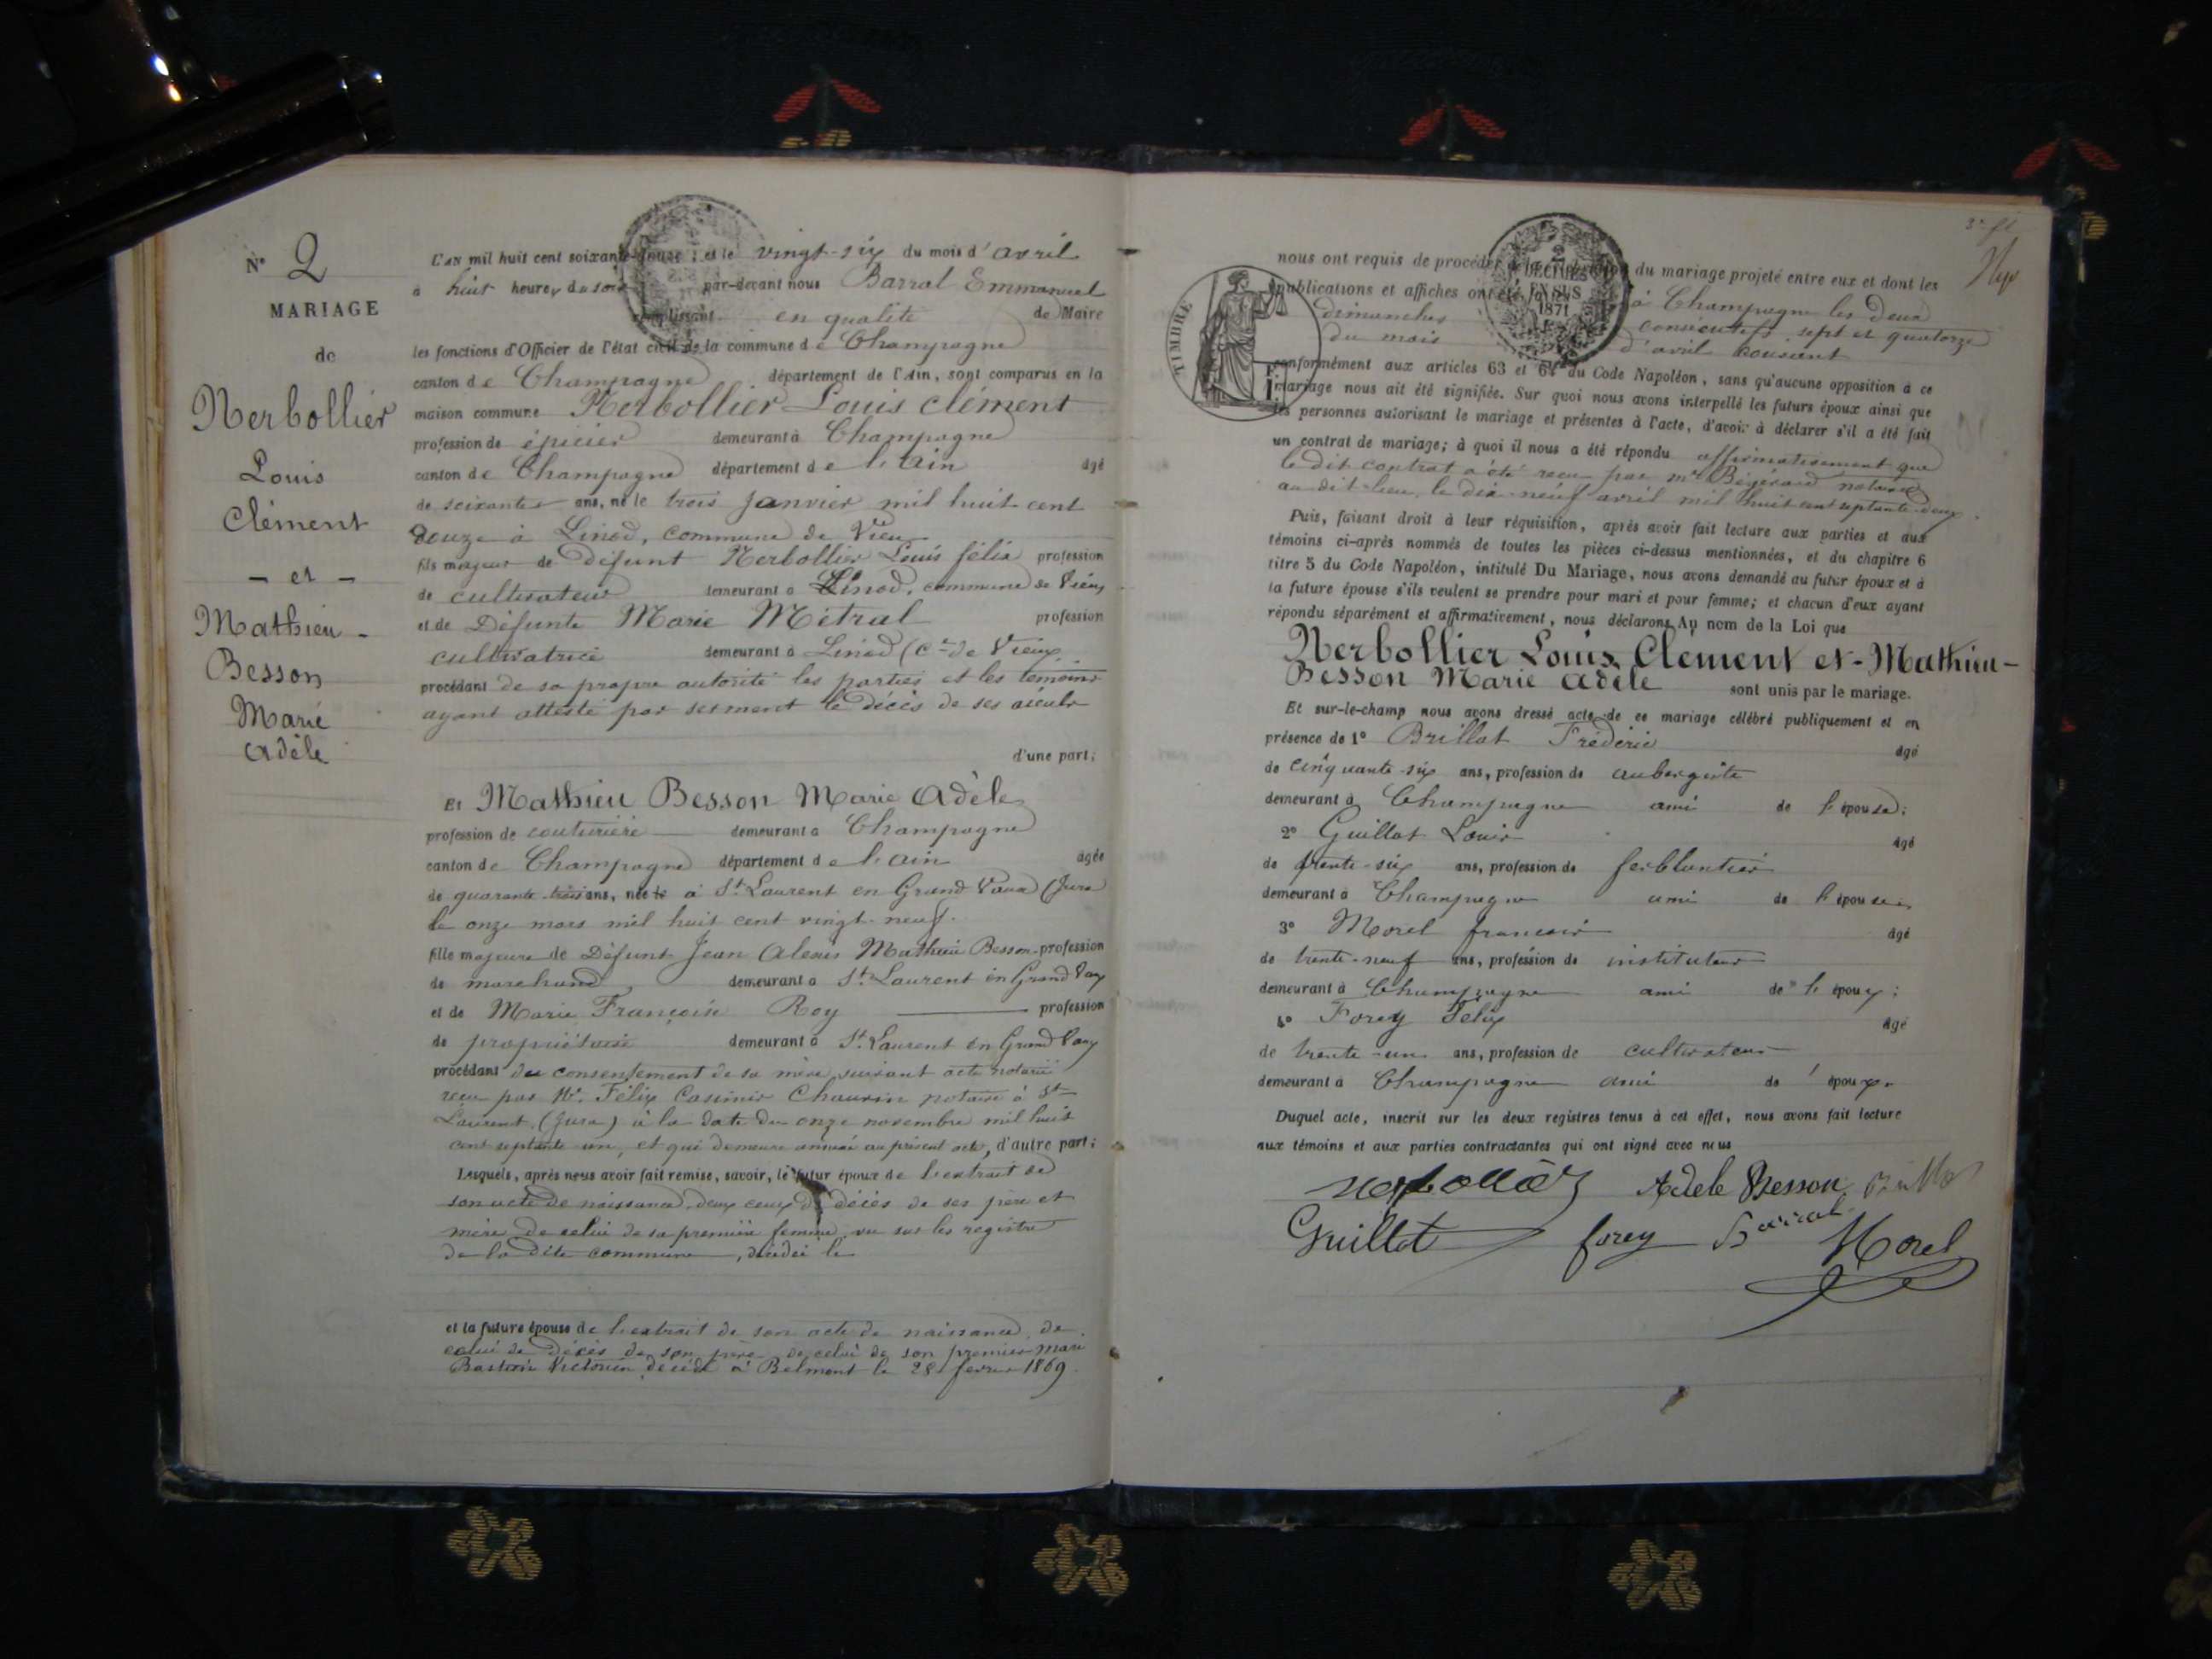 N° 2
MARIAGE
de
Nerbollier
Louis
Clément
- et -
Mathieu -
Besson
Marie
Adèle
L'AN mil huit cent soixante-douze ; et le vingt-six du mois d'avril
à huit heures du soir par-devant nous Barral Emmanuel
remplissant en qualité de Maire
les fonctions d'Officier de l'état civil de la commune de Champagne
canton de Champagne département de l'Ain, sont comparus en la
maison commune Nerbollier Louis Clément
profession de épicier demeurant à Champagne
canton de Champagne département de l'Ain âgé
de soixante ans, né le trois janvier mil huit cent
douze à Linod, commune de Vieu
fils majeur de défunt Nerbollier Louis félix profession
de cultivateur demeurant à Linod, commune de Vieu
et de Défunte Marie Mitral profession
cultivatrice demeurant à Linod (Cne de Vieux
procédant de sa propre autorité les parties et les témoins
ayant attesté par serment le décès de ses aïeuls
d'une part;
Et Mathieu Besson Marie Adèle
profession de couturière demeurant à Champagne
canton de Champagne département de l'Ain âgée
de quarante-trois ans, née le à St Laurent en Grand Vaux (Jura
le onze mars mil huit cent vingt-neuf.
fille majeure de Défunt Jean Alexis Mathieu Besson profession
de marchand demeurant à St Laurent en Grand Vaux
et de Marie Françoise Roy profession
de propriétaire demeurant à St Laurent en Grand Vaux
procédant du consentement de sa mère, suivant acte notarié
reçu par Me Félix Casimir Chauvin notaire à St
Laurent, (Jura) à la date du onze novembre mil huit
cent septante un, et qui demeure annexé au présent acte, d'autre part;
Lesquels, après nous avoir fait remise, savoir, le futur époux de l'extrait de
son acte de naissance, deux ceux de décès de ses père et
mère de celui de sa première femme, vu sur les registre
de la dite commune, décédée le
et la future épouse de l'extrait de son acte de naissance, de
celui de décès de son père de celui de son premier mari
Bastion Victorin décédé à Belmont le 28 fevrier 1869.
nous ont requis de procéder à la célébration du mariage projeté entre eux et dont les
publications et affiches ont été faites à Champagne les deux
dimanches consécutifs sept et quatorze
du mois d'avril courant
2 DÉCIMES EN SUS 1871
TIMBRE
conformément aux articles 63 et 64 du Code Napoléon, sans qu'aucune opposition à ce
mariage nous ait été signifiée. Sur quoi nous avons interpellé les futurs époux ainsi que
les personnes autorisant le mariage et présentes à l'acte, d'avoir à déclarer s'il a été fait
un contrat de mariage; à quoi il nous a été répondu affirmativement que
le dit contrat a été reçu par me notaire
au dit lieu, le dix-neuf avril mil huit cent septante-deux.
Puis, faisant droit à leur réquisition, après avoir fait lecture aux parties et aux
témoins ci-après nommés de toutes les pièces ci-dessus mentionnées, et du chapitre 6
titre 5 du Code Napoléon, intitulé Du Mariage, nous avons demandé au futur époux et à
la future épouse s'ils veulent se prendre pour mari et pour femme; et chacun d'eux ayant
répondu séparément et affirmativement, nous déclarons Au nom de la Loi que
Nerbollier Louis Clément et Mathieu-
Besson Marie Adèle sont unis par le mariage.
Et sur-le-champ nous avons dressé acte de ce mariage célébré publiquement et en
présence de 1° Brillat Fréderic âgé
de cinquante-six ans, profession de aubergiste
demeurant à Champagne ami de l'épouse;
2° Guillot Louis âgé
de trente-six ans, profession de ferblantier
demeurant à Champagne ami de l'épouse;
3° Morel françois âgé
de trente-neuf ans, profession de instituteur
demeurant à Champagne ami de l'époux;
4° Forey Félix âgé
de trente-un ans, profession de cultivateur
demeurant à Champagne ami de l'époux.
Duquel acte, inscrit sur les deux registres tenus à cet effet, nous avons fait lecture
aux témoins et aux parties contractantes qui ont signé avec nous
Nerbollier Adele Besson Brillat
Guillot forey Barral Morel